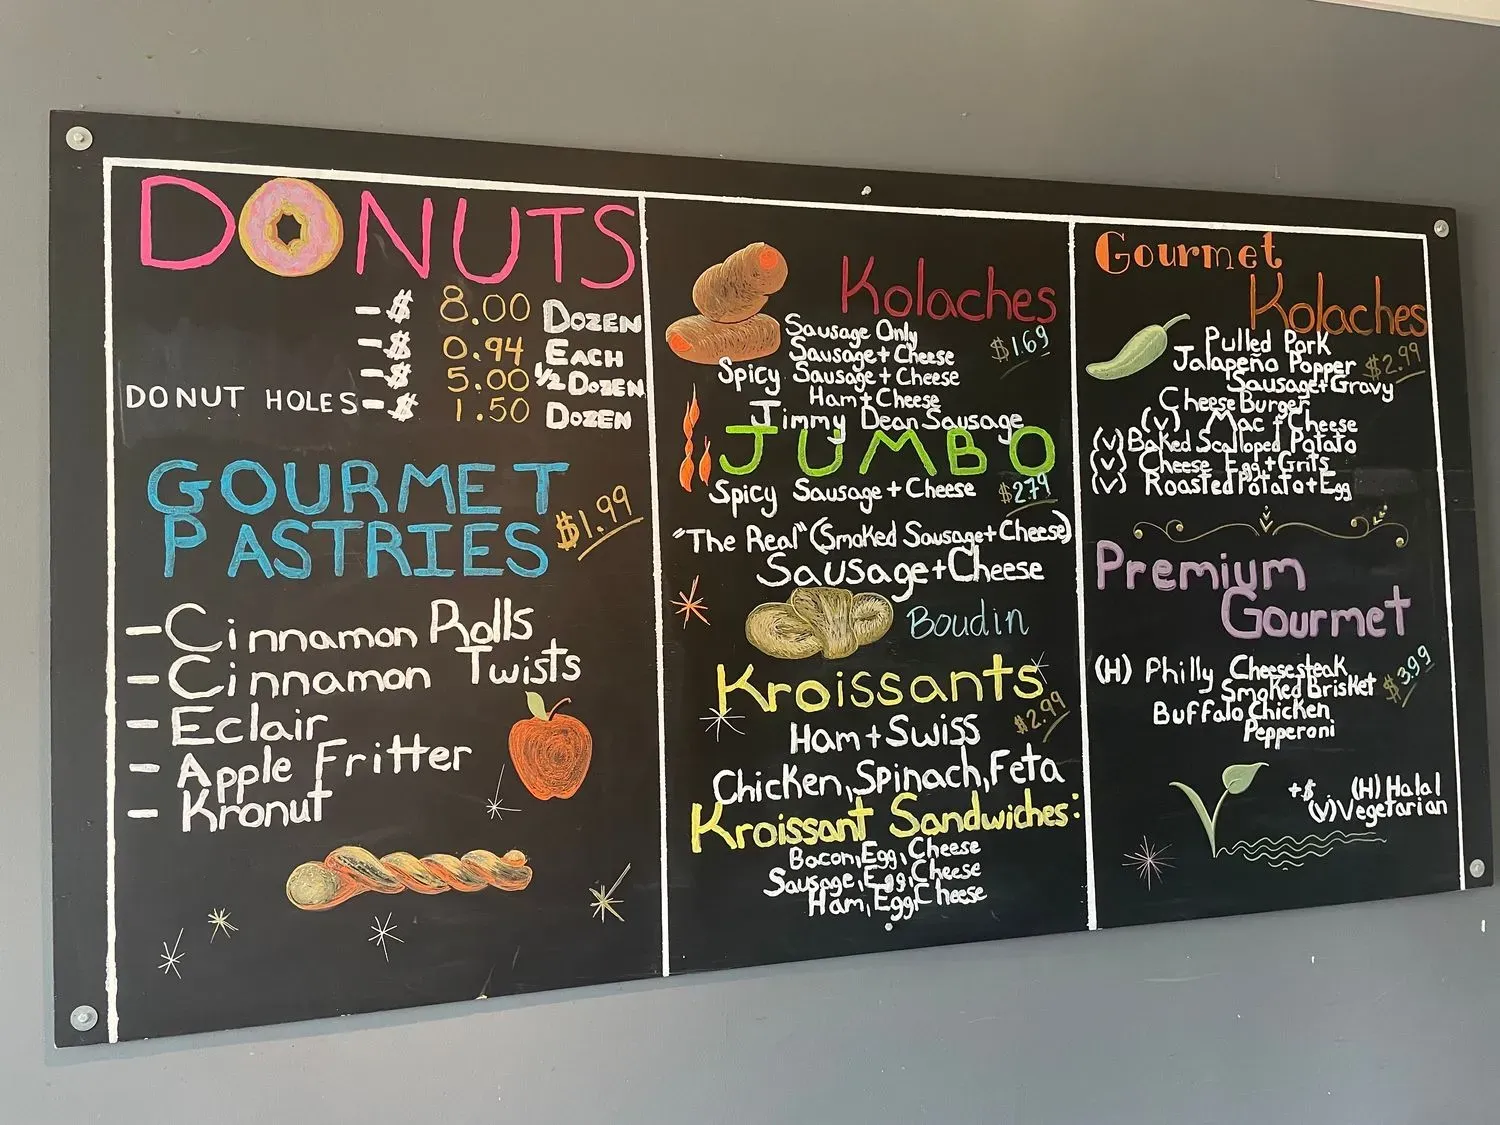 DONUTS
- $ 8.00 DOZEN
- $ 0.94 EACH
- $ 5.00 ½ DOZEN
DONUT HOLES - $ 1.50 DOZEN
GOURMET
PASTRIES $1.99
- Cinnamon Rolls
- Cinnamon Twists
- Eclair
- Apple Fritter
- Kronut
Kolaches
Sausage Only $1.69
Sausage + Cheese
Spicy Sausage + Cheese
Ham + Cheese
Jimmy Dean Sausage
JUMBO
Spicy Sausage + Cheese $2.79
"The Real" (Smoked Sausage + Cheese)
Sausage + Cheese
Boudin
Kroissants
Ham + Swiss $2.99
Chicken, Spinach, Feta
Kroissant Sandwiches:
Bacon, Egg, Cheese
Sausage, Egg, Cheese
Ham, Egg, Cheese
Gourmet
Kolaches
Pulled Pork
Jalapeño Popper $2.99
Sausage + Gravy
Cheese Burger
(V) Mac + Cheese
(V) Baked Scalloped Potato
(V) Cheese Egg + Grits
(V) Roasted Potato + Egg
Premium
Gourmet
(H) Philly Cheesesteak
Smoked Brisket $3.99
Buffalo Chicken
Pepperoni
+$ (H) Halal
(V) Vegetarian